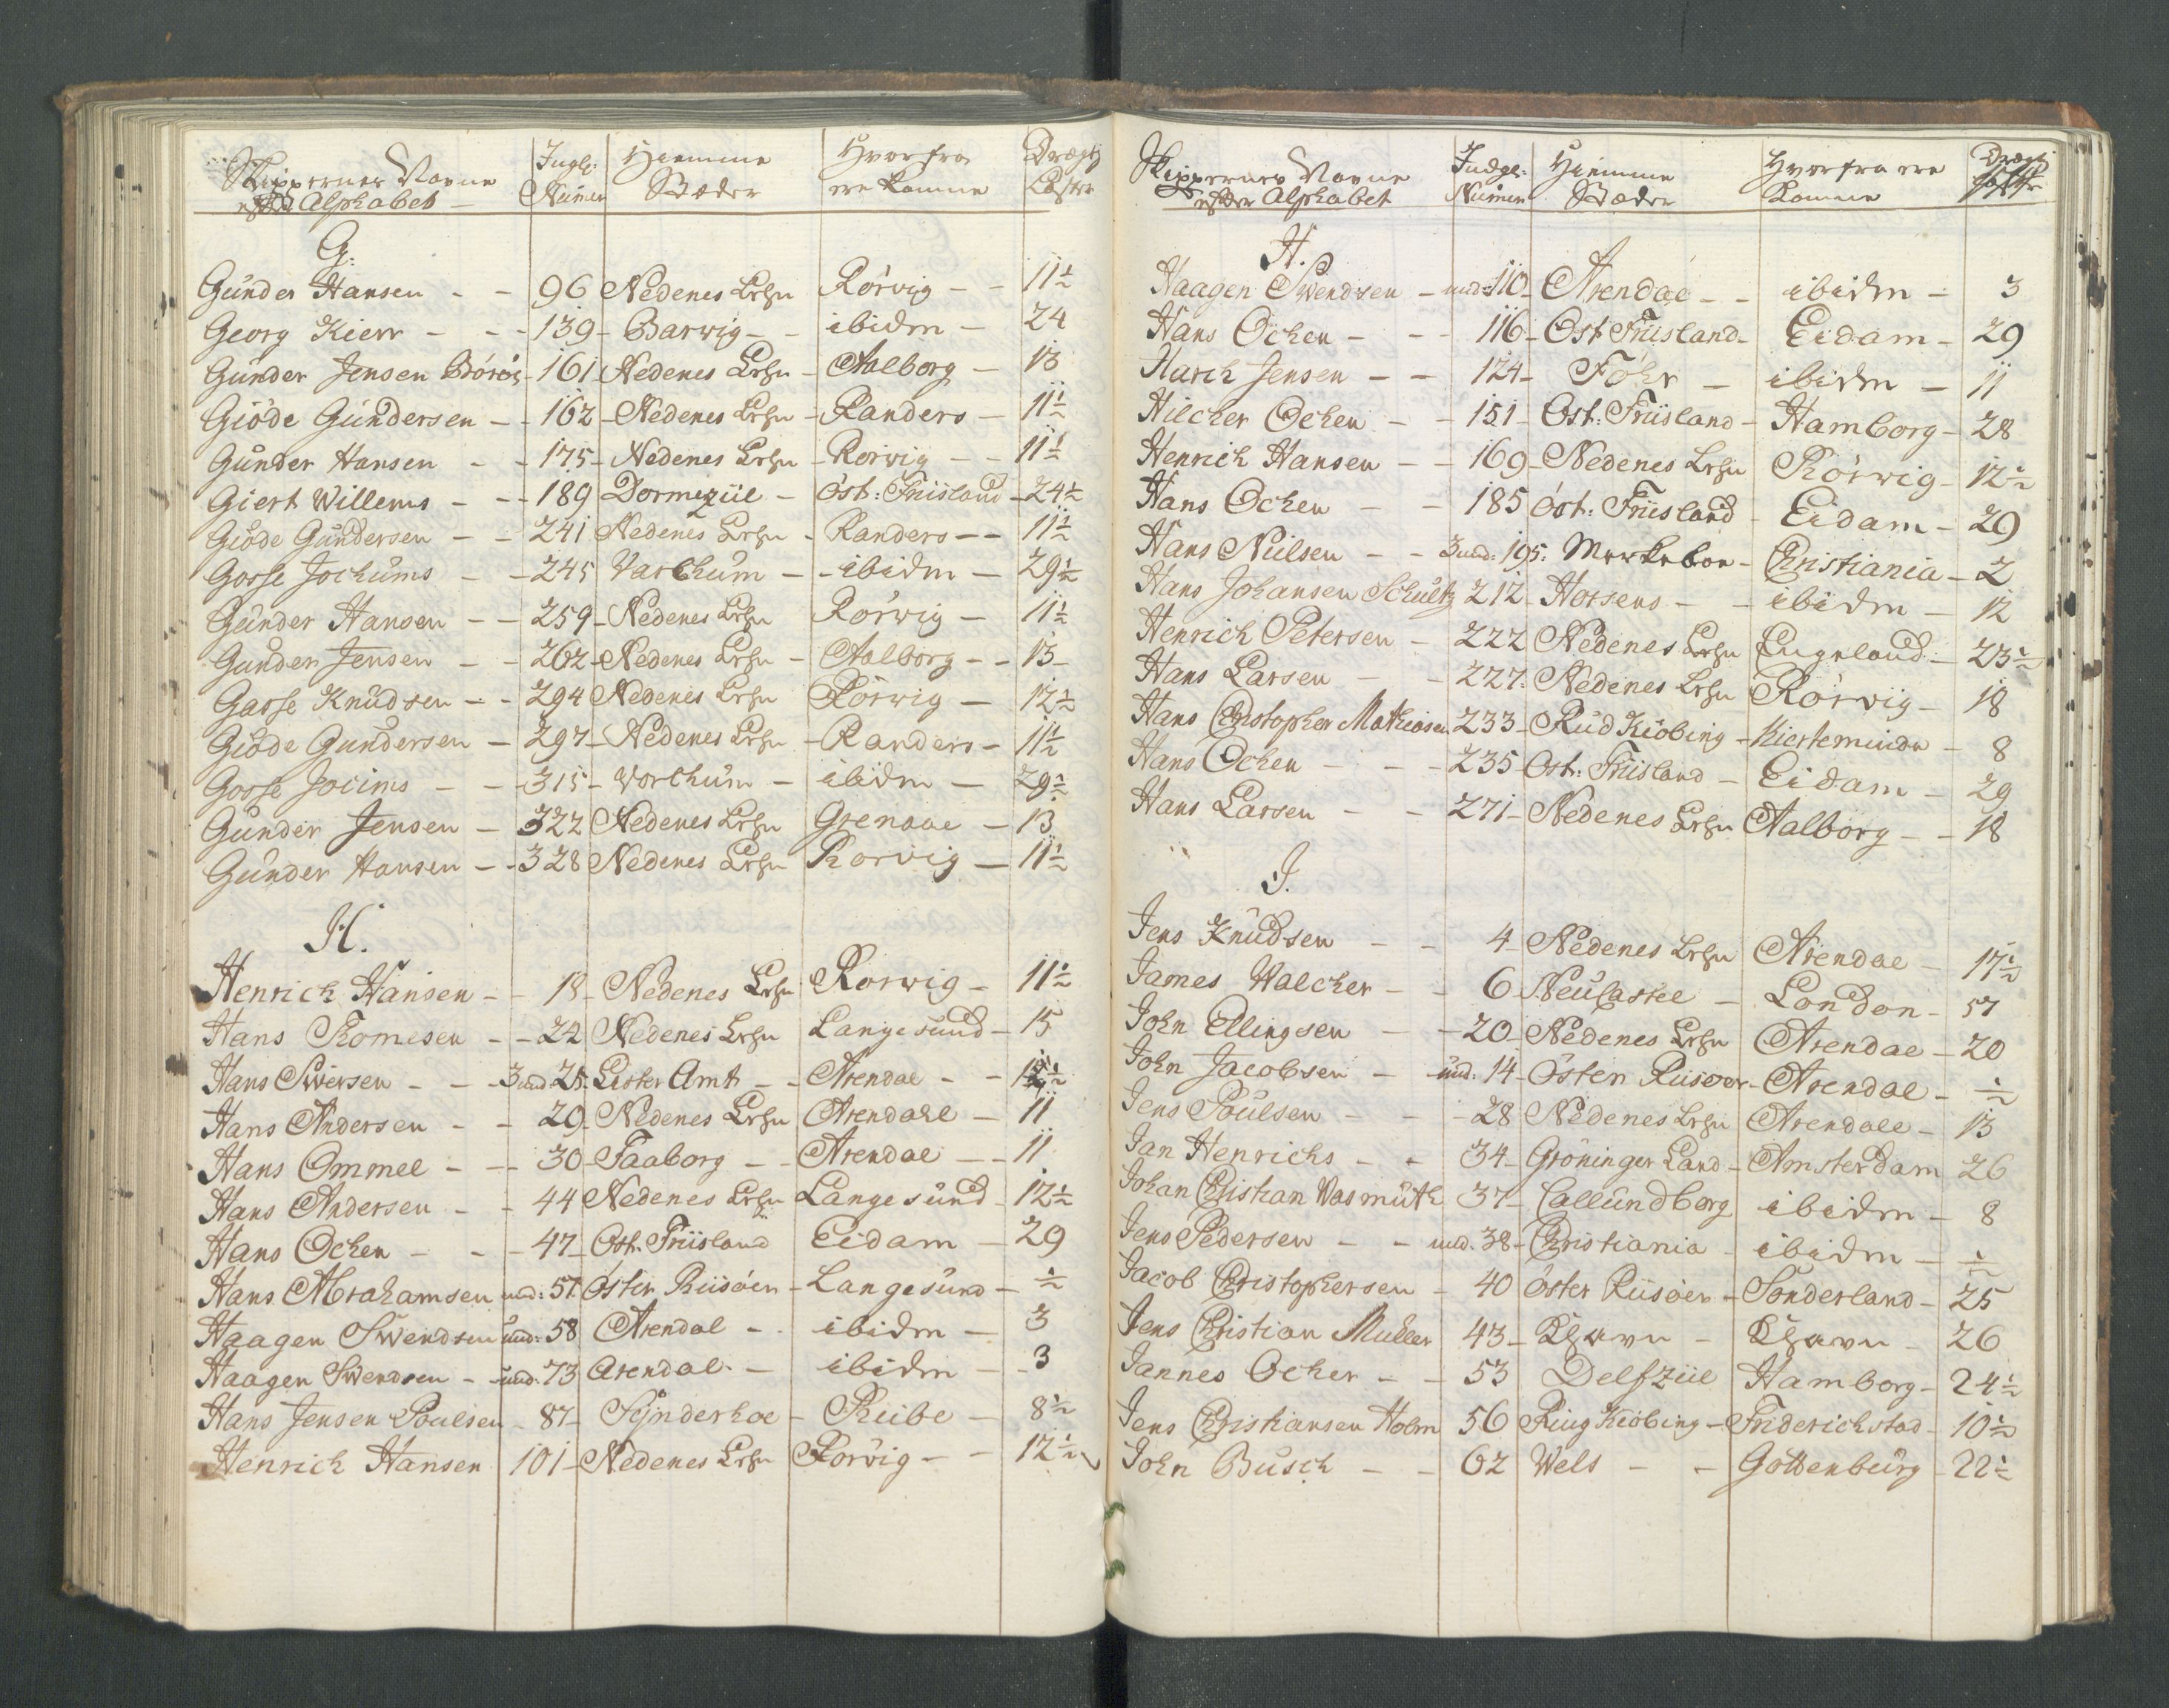 Skippernes Navne Indgl: Hiemme Hvorfra Drægt:
efter Alphabet Numer Stæder ere komne Læster
G:
Gunder Hansen - - 96 Nedenes Lehn Rörvig - - 11½
Georg Kierr - - - 139 - Barwig - - ibidm - 24
Gunder Jensen 161 - Nedenes Lehn - Aalborg - 13
Giöde Gundersen - - 162 - Nedenes Lehn - Randers - 11½
Gunder Hansen - - 175 - Nedenes Lehn - Rörvig - - 11½
Giert Willems - - - 189 Dormeziil - Öst: Friisland - 24½
Giöde Gundersen - - 241 Nedenes Lehn - Randers - - 11½
Gosse Jochums - - 245 Varchum - - ibidm - 29½
Gunder Hansen - - 259 - Nedenes Lehn Rörwig - 11½
Gunder Jensen - - 262 - Nedenes Lehn - Aalborg - - 13 -
Gasse Knudsen - - 294 Nedenes Lehn Rörwig - 12½
Giöde Gundersen - 297 - Nedenes Lehn - Randers - 11½
Gosse Jocims - - 315 - Vorchum - ibidm - 29½
Gunder Jensen - 322 Nedenes Lehn Grenaae - 13
Gunder Hansen - - 328 Nedenes Lehn Rorvig - 11½
H.
Henrich Hansen - - 18 - Nedenes Lehn Rorwig - 11½
Hans Thomesen - - 22 Nedenes Lehn Langesund - 15
Hans Swersen - - - 3 und 25. Lister Amt - - Arendal - -
Hans Andersen - - 29 - Nedenes Lehn Arendahl - 11
Hans Ommel - - - 30 - Faaborg - - Arendal - - 11
Hans Andersen - - 44 Nedenes Lehn Langesund - 12½
Hans Ochen - - - 47 - Ost. Friisland Eidam - 29
Hans Abrahamsen und: 57 Öster Riisöen - Langesund - ½
Haagen Swendsen und: 58 Arendal - - ibidm - 3
Haagen Swendsen - und: 73 Arendal - - ibidm - - 3
Hans Jensen Poulsen - 87 - Synderhoe - Riibe - 8½
Henrich Hansen 101 - Nedenes Lehn Rorvig - - 12½
Skippernes Navne Indgl: Hiemme Hvorfra ere Drægt:
efter Alphabet Numer Stæder komne
H.
Haagen Swendsen - und: 110 - Arendal - - ibidm - 3
Hans Ochen - - - 116 - Ost Friisland - Eidam - 29
Harch Jensen - - 124 - Föhr - ibidm - 11
Hilcher Ochen - - 151 - Öst: Friisland - Hamborg - 28
Henrich Hansen - - 169 - Nedenes Lehn Rörvig - 12½
Hans Ochen - - 185 Öst: Friisland - Eidam - 29
Hans Nielsen - - 3 und: 195: Merkeboe - Christiania - 2
Hans Johansen Schultz 212 - Horsens - - ibidm - 12
Henrich Petersen - 222 Nedenes Lehn Engeland - 23½
Hans Larsen - - 227 - Nedenes Lehn Rörviig - 18
Hans Christopher Mathiasen 233 - Rudkiöbing - Kierteminde - 8
Hans Ochen - - - 235 Ost: Friisland - Eidam - 29
Hans Larsen - - 271 - Nedenes Lehn Aalborg - - 18
J.
Jens Knudsen - - 4 - Nedenes Lehn Arendal - 17½
James Walcher - - 6 Neucastel - London - 57
John Ellingsen - - 20 - Nedenes Lehn Arendal - 20
John Jacobsen - und: 14 - Östen Riisoer - Arendal - ½
Jens Poulsen - - - 28 Nedenes Lehn Arendall - 13
Jan Henrichs - - 34 - Gröninger Land - Amsterdam 26
Johan Christian Wasmuth 37 - Callundborg ibidm - 8
Jens Pedersen - - und. 38 - Christiania - ibidm - ½
Jacob Christophersen - 40 Öster Riisöer - Sonderland - 25
Jens Christian Muller 43 - Khavn - Khavn - 26
Jannes Ocher - - 53 Delfziil Hamborg - 24½
Jens Christiansen Holm 56 Ringkiöbing - Friderichstad - 10½
John Busch - - 62 Wels - - Gottenburg - 22½